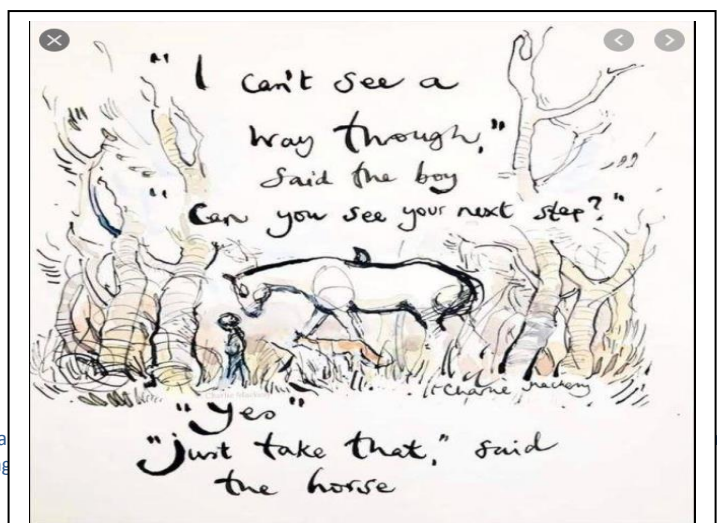 "I can't see a
way though,"
said the boy
"Can you see your next step?"
Charlie Mackesy
Charlie Mackesy
"Yes"
"Just take that," said
the horse